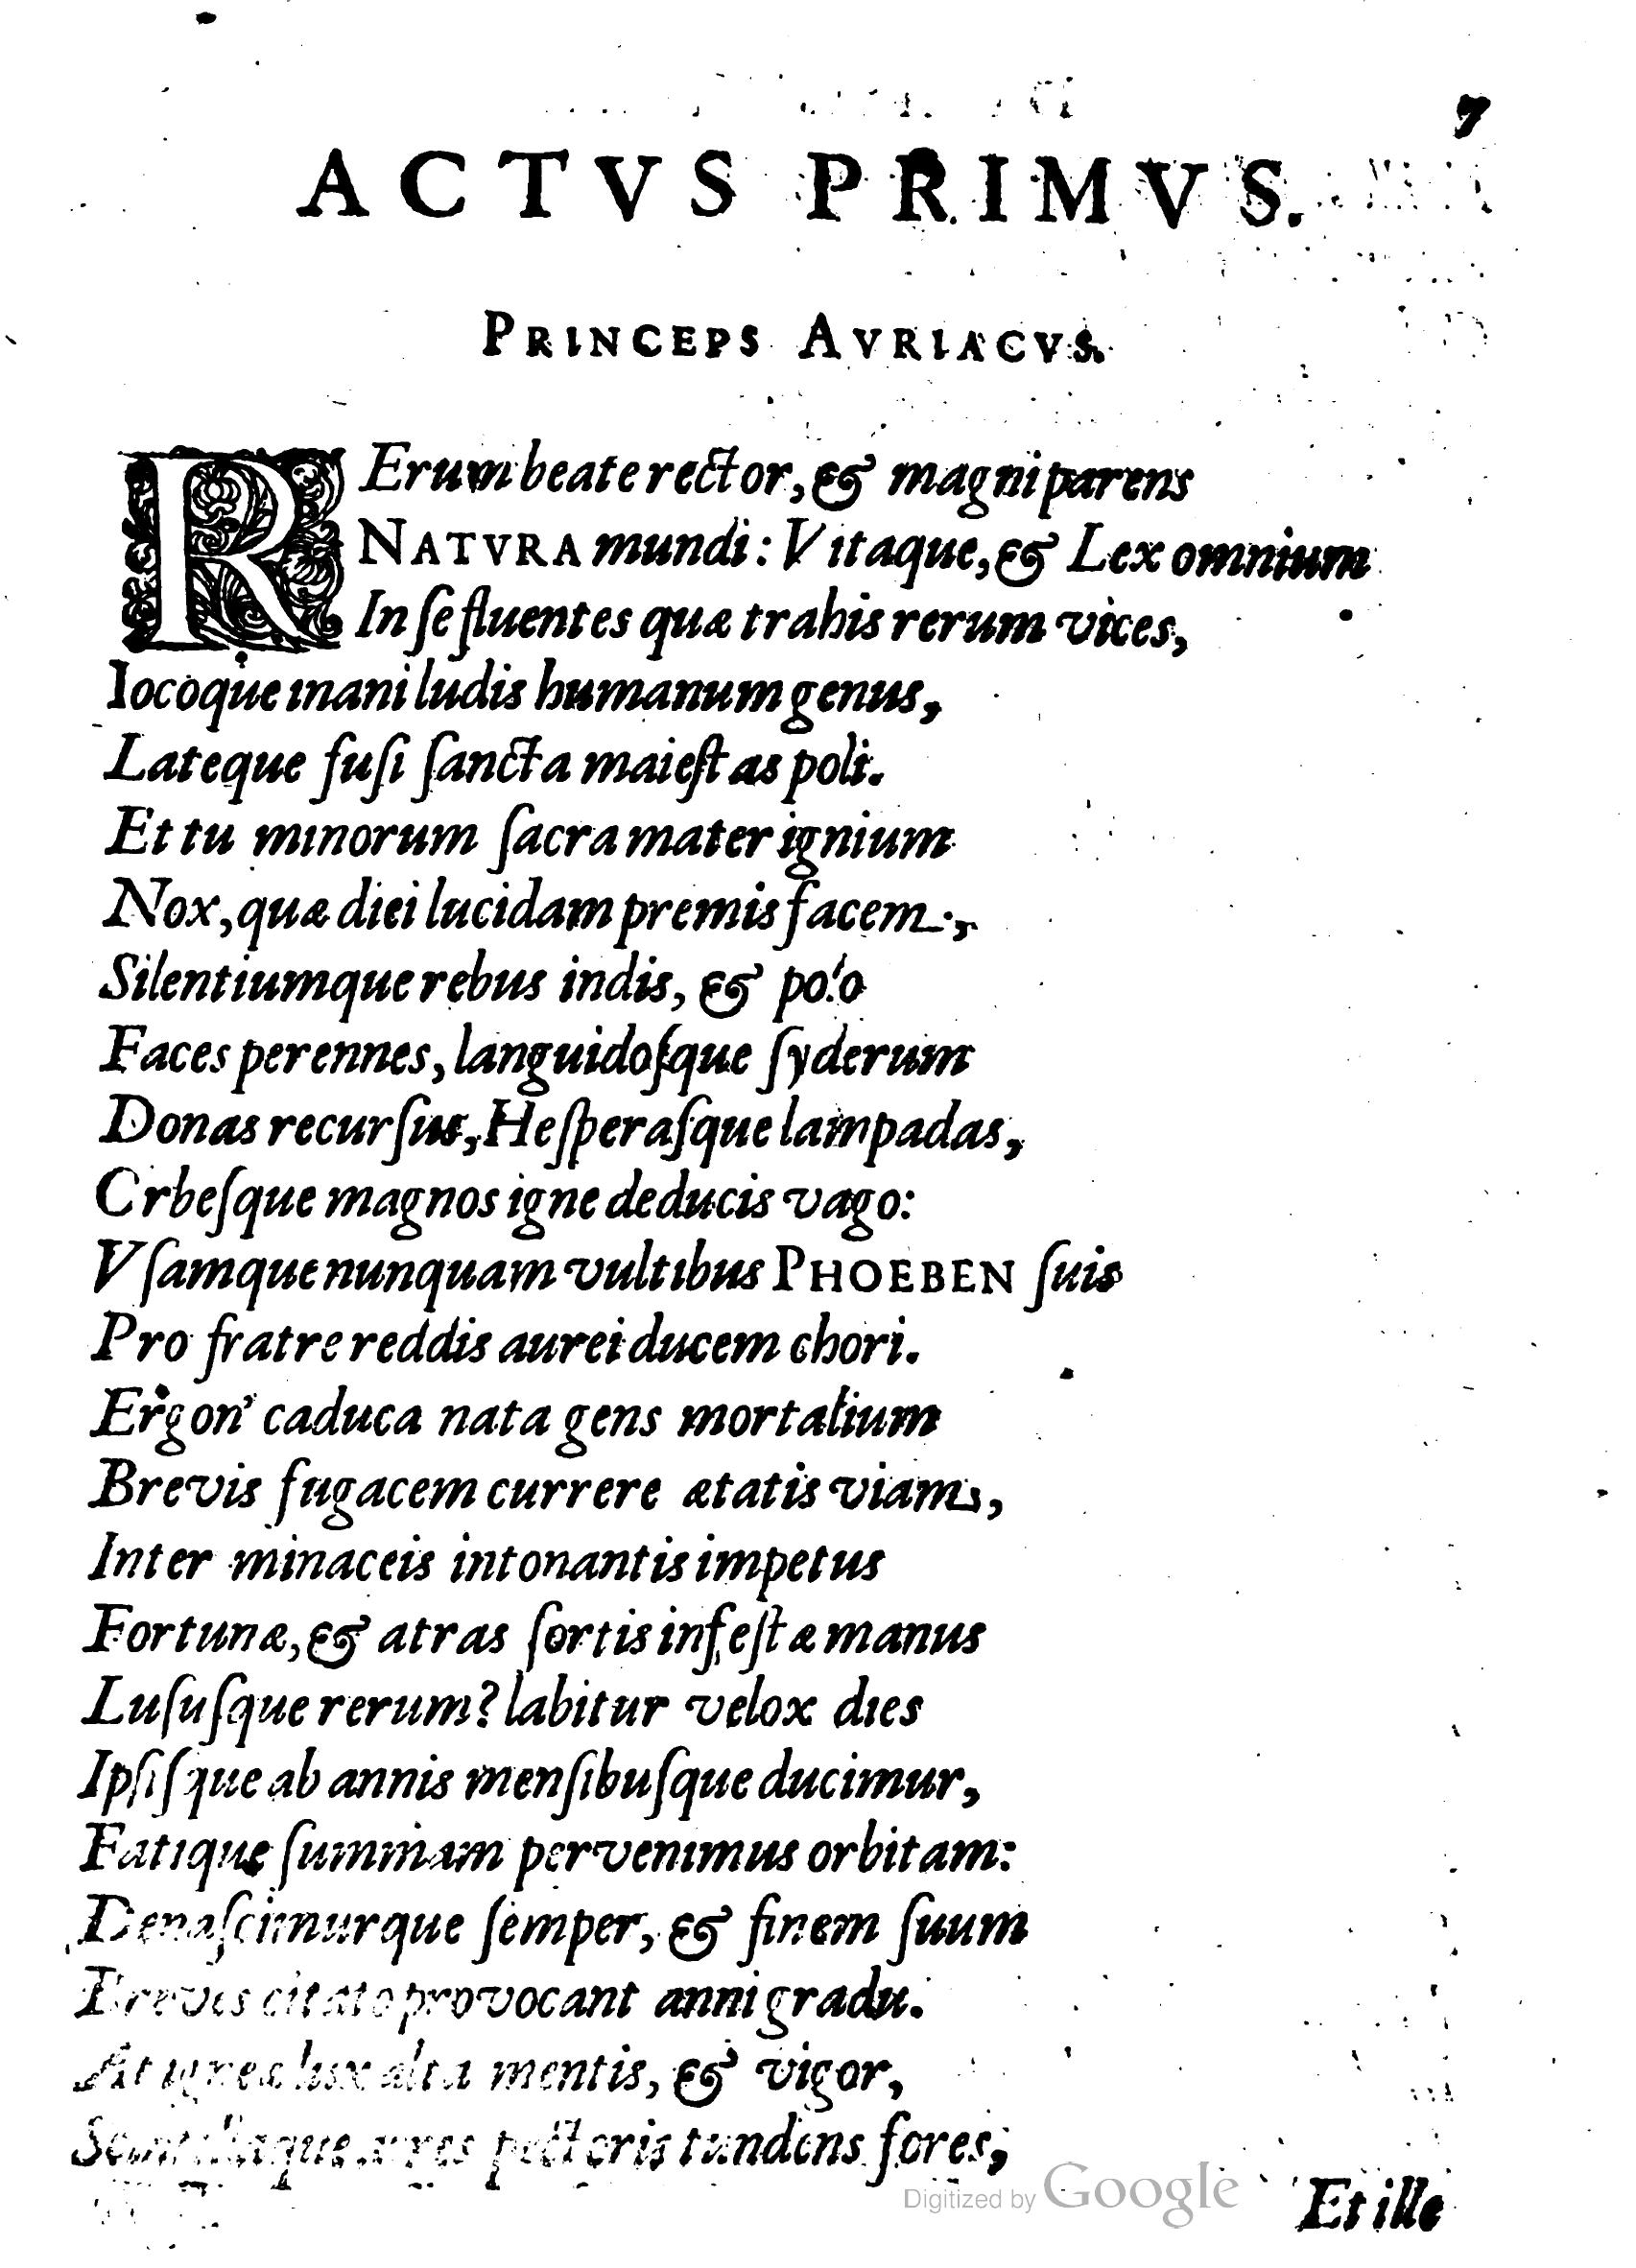 7
ACTVS PRIMVS.
PRINCEPS AVRIACVS.
RErum beate rector, & magni parens
NATVRA mundi: Vitaque, & Lex omnium
In se fluentes quæ trahis rerum vices,
Iocoque inani ludis humanum genus,
Lateque fusi sancta maiestas poli.
Et tu minorum sacra mater ignium
Nox, quæ diei lucidam premis facem,
Silentiumque rebus indis, & polo
Faces perennes, languidosque syderum
Donas recursus, Hesperasque lampadas,
Orbesque magnos igne deducis vago:
Vsamque nunquam vultibus PHOEBEN suis
Pro fratre reddis aurei ducem chori.
Ergon' caduca nata gens mortalium
Brevis fugacem currere ætatis viam,
Inter minaceis intonantis impetus
Fortunæ, & atras sortis infestæ manus
Lususque rerum? labitur velox dies
Ipsisque ab annis mensibusque ducimur,
Fatique summam pervenimus orbitam:
Denascimurque semper, & finem suum
Breves citato provocant anni gradu.
At ignea lux alta mentis, & vigor,
pectoris tundens fores,
Et ille
Digitized by Google